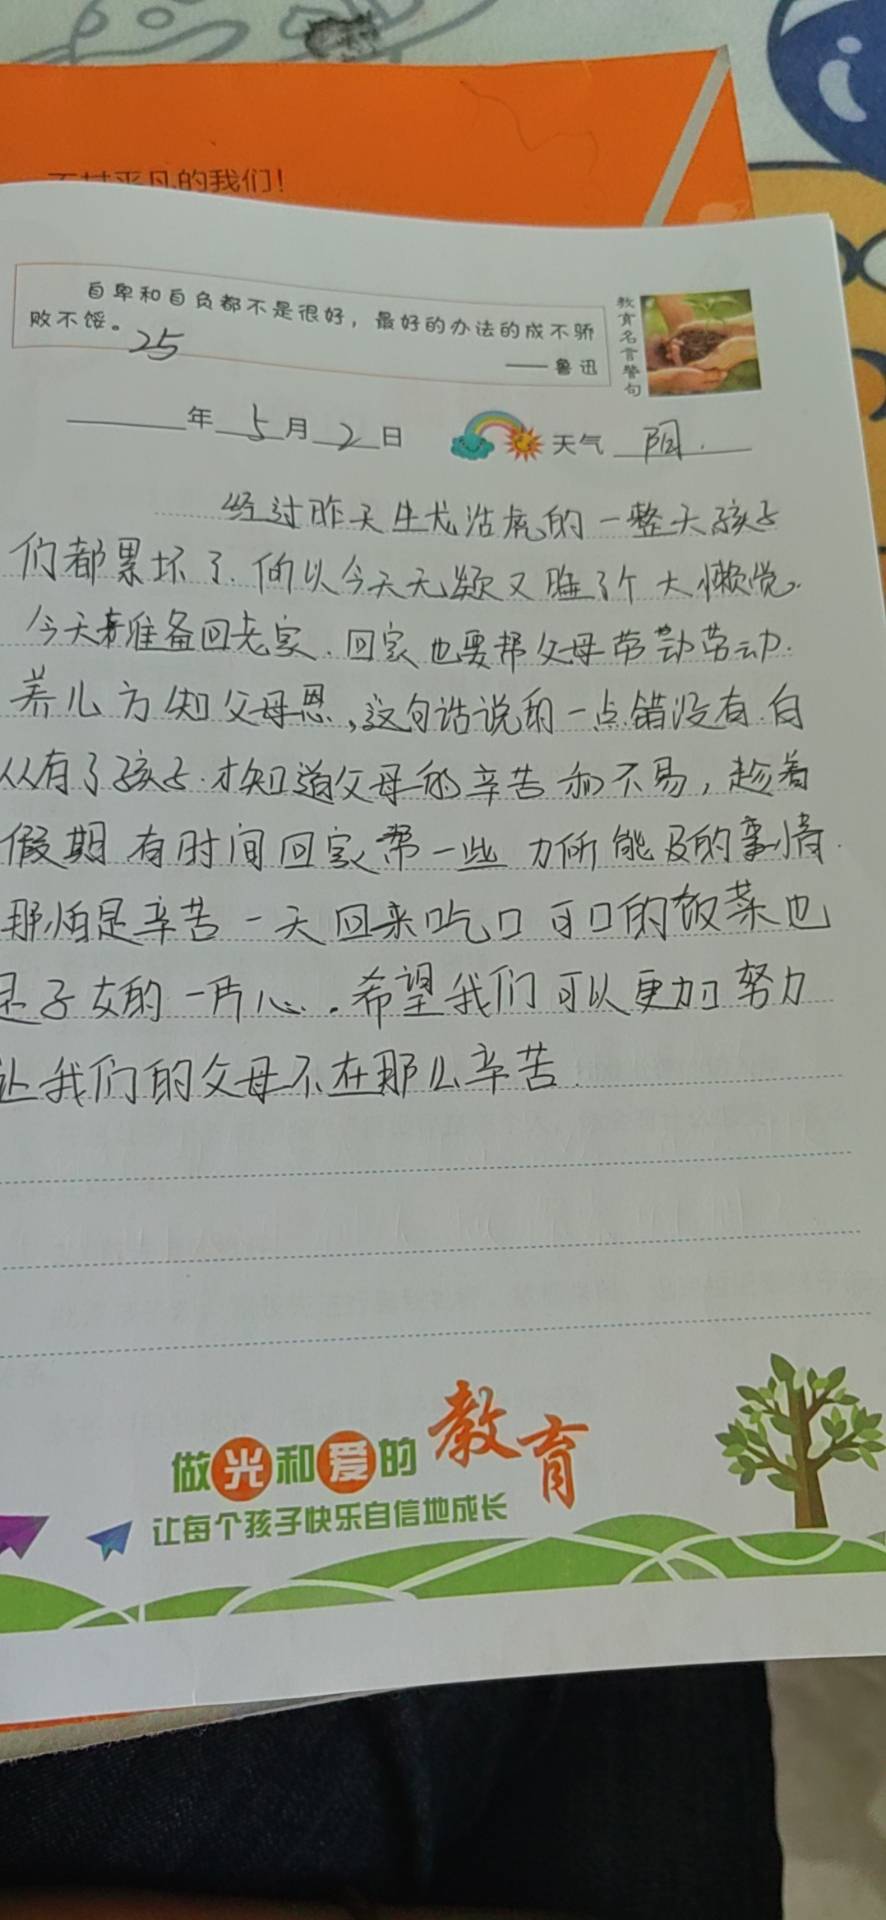 不甘平凡的我们！
自卑和自负都不是很好，最好的办法的成不骄
败不馁。
25
——鲁迅
教育名言警句
年 5月 2日 天气 阴.
经过昨天生龙活虎的一整天孩子
们都累坏了.所以今天无疑又睡了个大懒觉.
今天准备回老家.回家也要帮父母劳动劳动.
养儿方知父母恩,这句话说的一点错没有.自
从有了孩子.才知道父母的辛苦和不易,趁着
假期有时间回家帮一些力所能及的事情.
那怕是辛苦一天回来吃口可口的饭菜也
是子女的一片心.希望我们可以更加努力
让我们的父母不在那么辛苦.
做光和爱的教育
让每个孩子快乐自信地成长